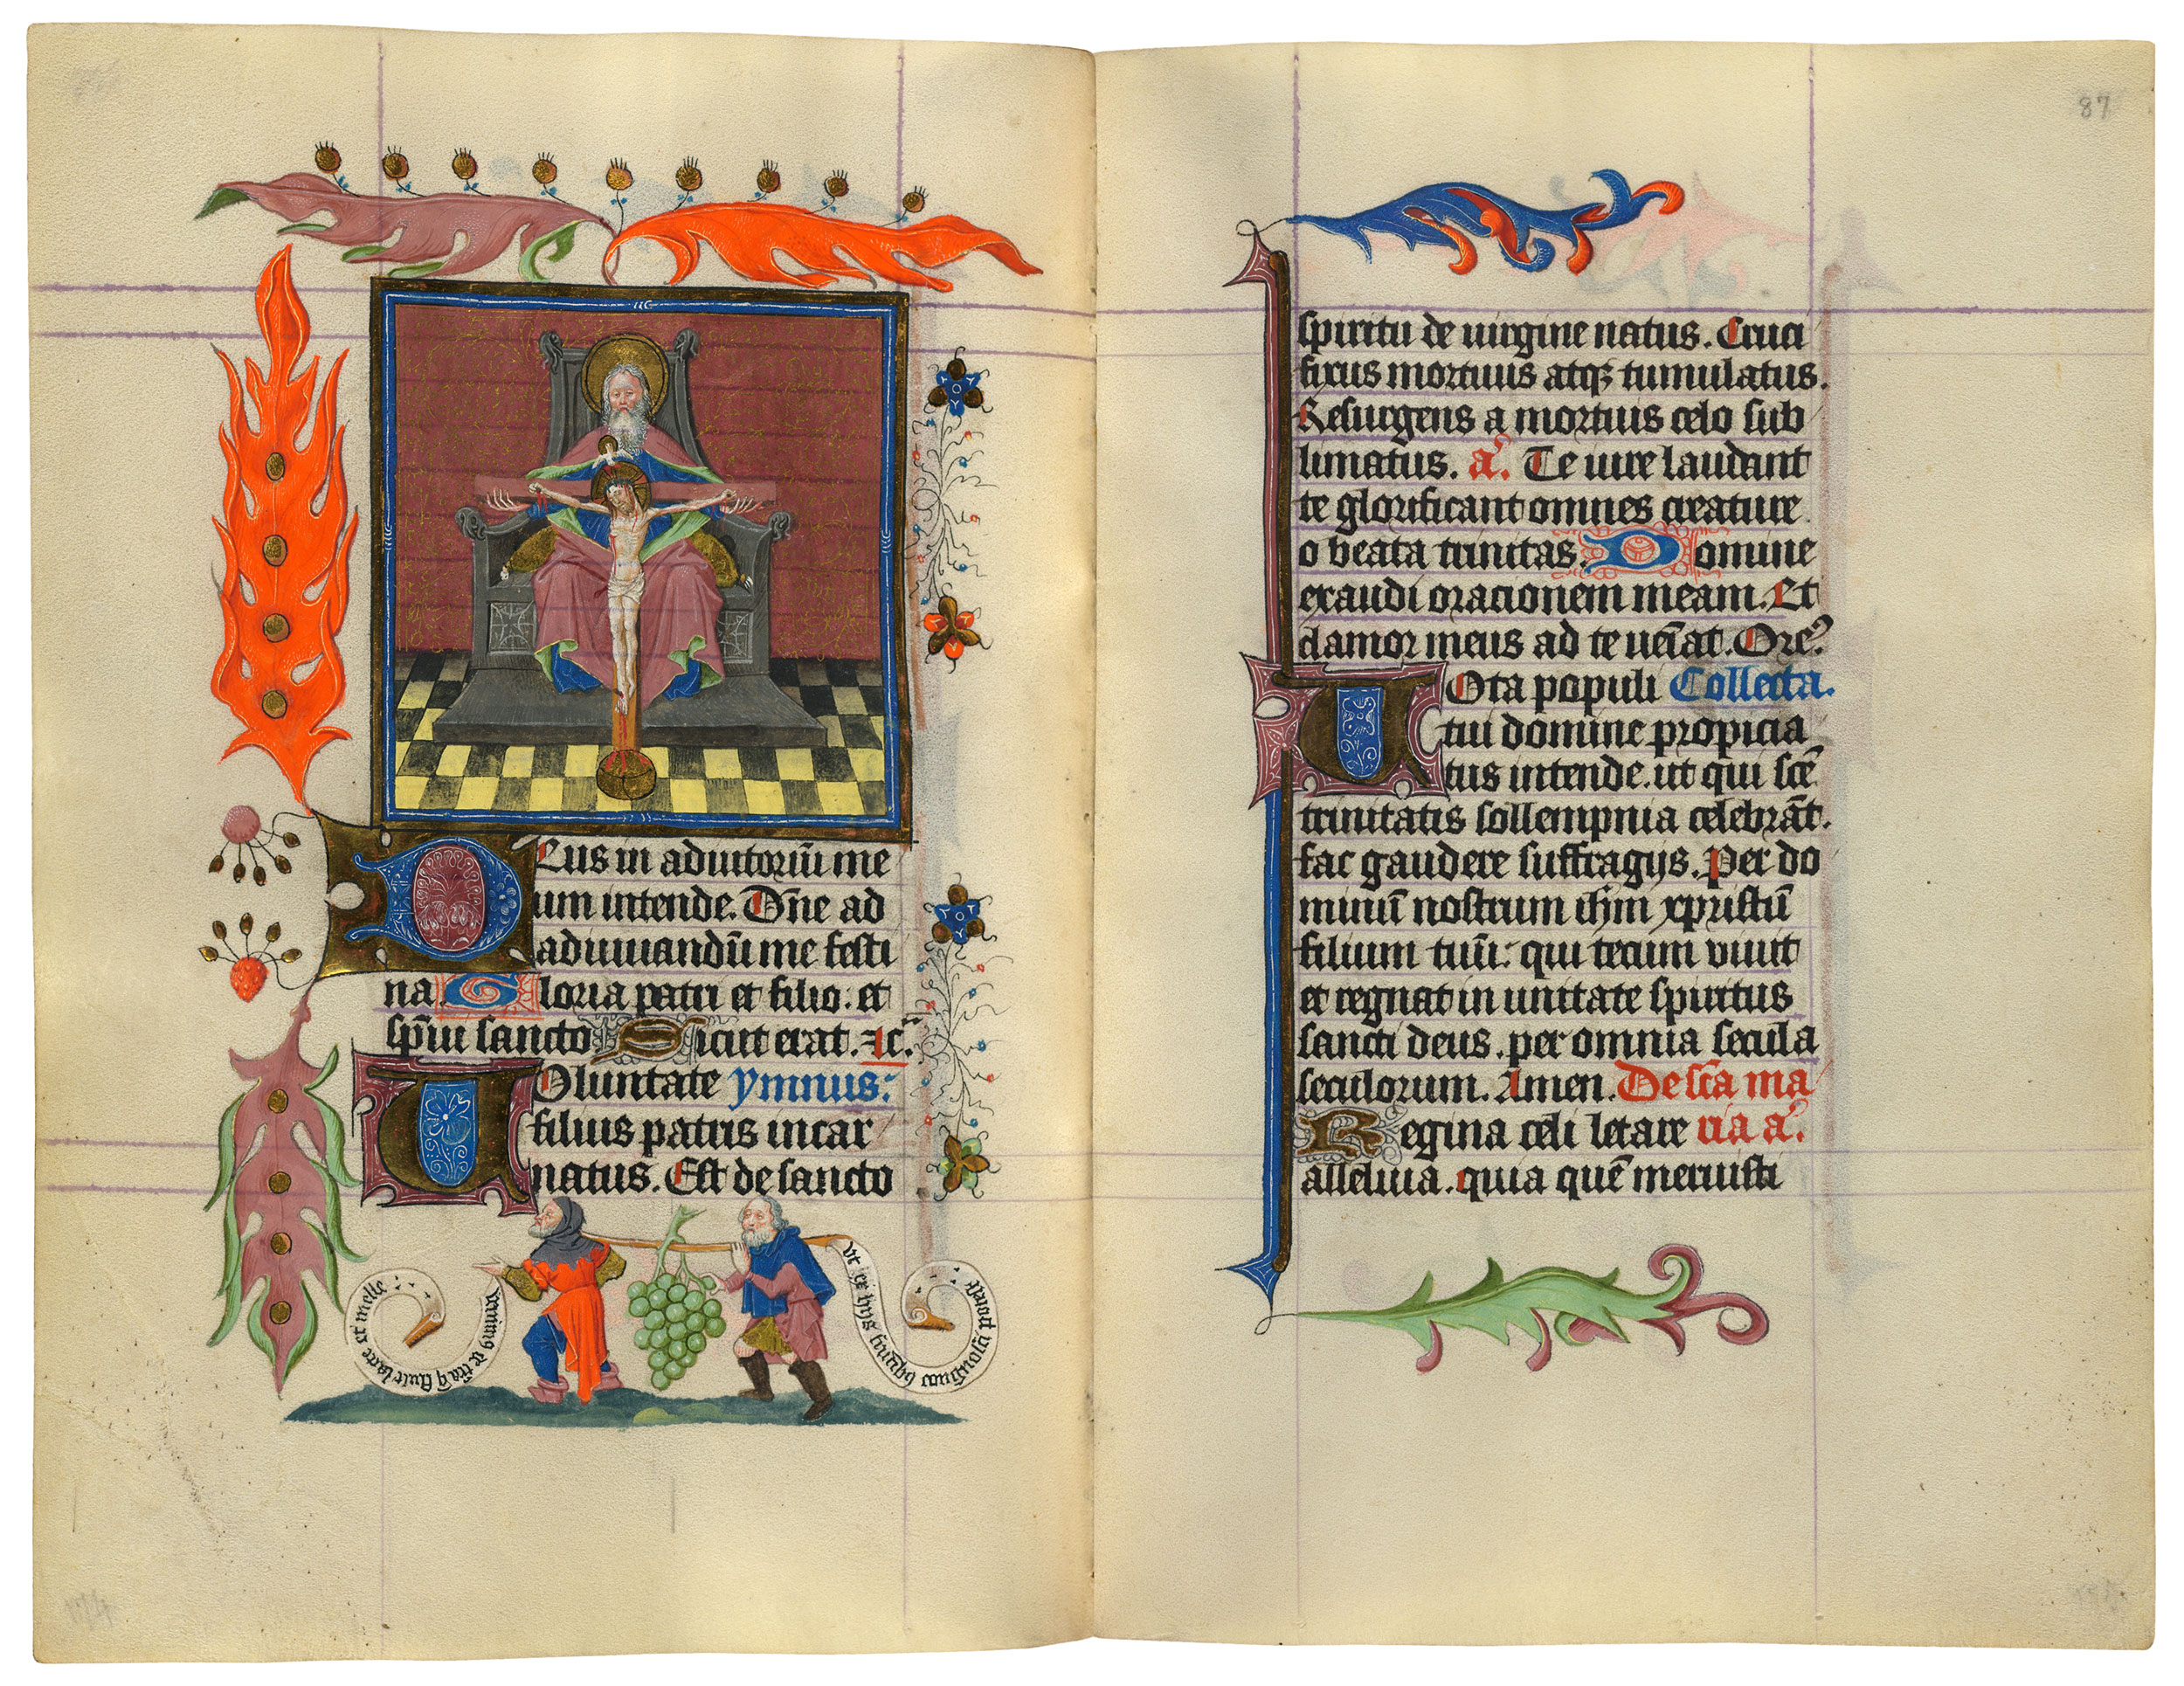 DEus in adiutoriū me
um intende. Dn̄e ad
adiuuandū me festi
na. Gloria patri et filio: et
sp̄iu sancto Sicut erat. ⁊c̄.
UOluntate ymnus:
filius patris incar
natus. Est de sancto
et melle
lacte
ut ex hijs
87
spiritu de uirgine natus. Cruci
fixus mortuus atqꝫ tumulatus.
Resurgens a mortuis celo sub
limatus. a̕. Te iure laudant
te glorificant omnes creature
o beata trinitas. Domine
exaudi orationem meam. Et
clamor meus ad te uēiat. Ore᷒
UOta populi Collecta.
tui domine propicia
tus intende. ut qui scē
trinitatis sollempnia celebrāt.
fac gaudere suffragijs. Per do
minū nostrum ihm̄ xpristū
filium tuū: qui tecum viuit
et regnat in unitate spiritus
sancti deus. per omnia secula
seculorum. Amen. De sc̄a ma
Regina celi letare ria a̕.
alleluia. quia quē meruisti